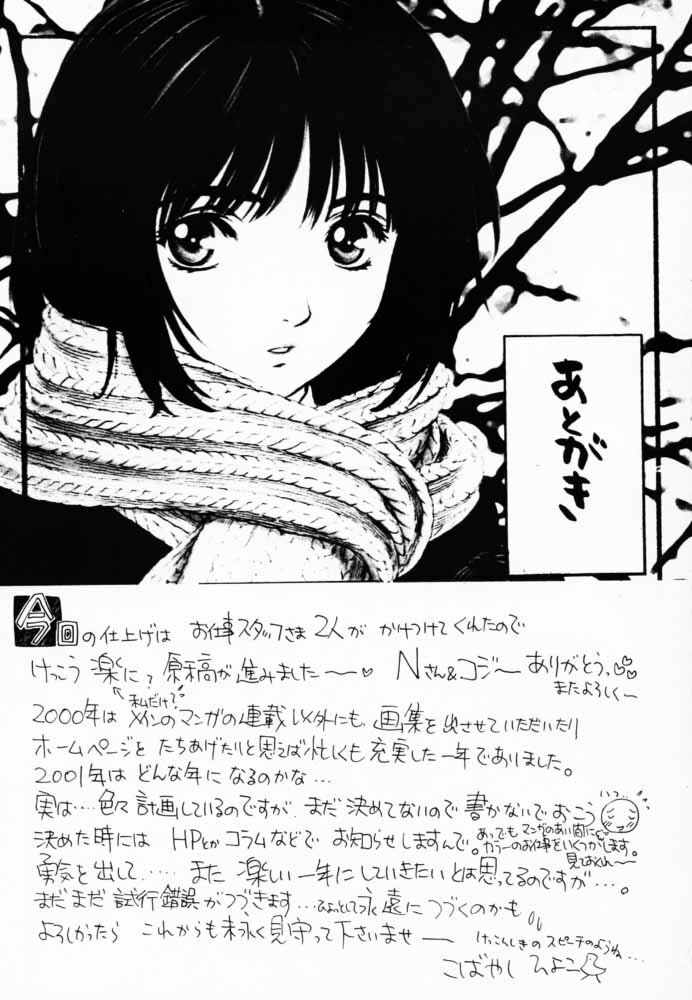 あとがき
今回の仕上げは お仕事スタッフさま2人が かけつけてくれたので
けっこう 楽に? 原稿が進みました〜〜♥ Nさん&コジ〜 ありがとう。
またよろしく〜
私だけ?
2000年は メインのマンガの連載以外にも、画集を出させていただいたり
ホームページを たちあげたりと思えば忙しくも充実した一年でありました。
2001年は どんな年に なるのかな…
実は…色々計画しているのですが、まだ決めてないので書かないでおこう
決めた時には HPとかコラムなどで お知らせしますんで。
あっでもマンガのあい間に
カラーのお仕事をいくつかします。
見ておくれ〜〜
勇気を出して…… また 楽しい一年にしていきたい とは思ってるのですが…。
まだまだ 試行錯誤がつづきます…ひょっとして永遠につづくのかも
よろしかったら これからも末永く見守って下さいませ〜
けっこんしきの スピーチのようね…
こばやし ひよこ